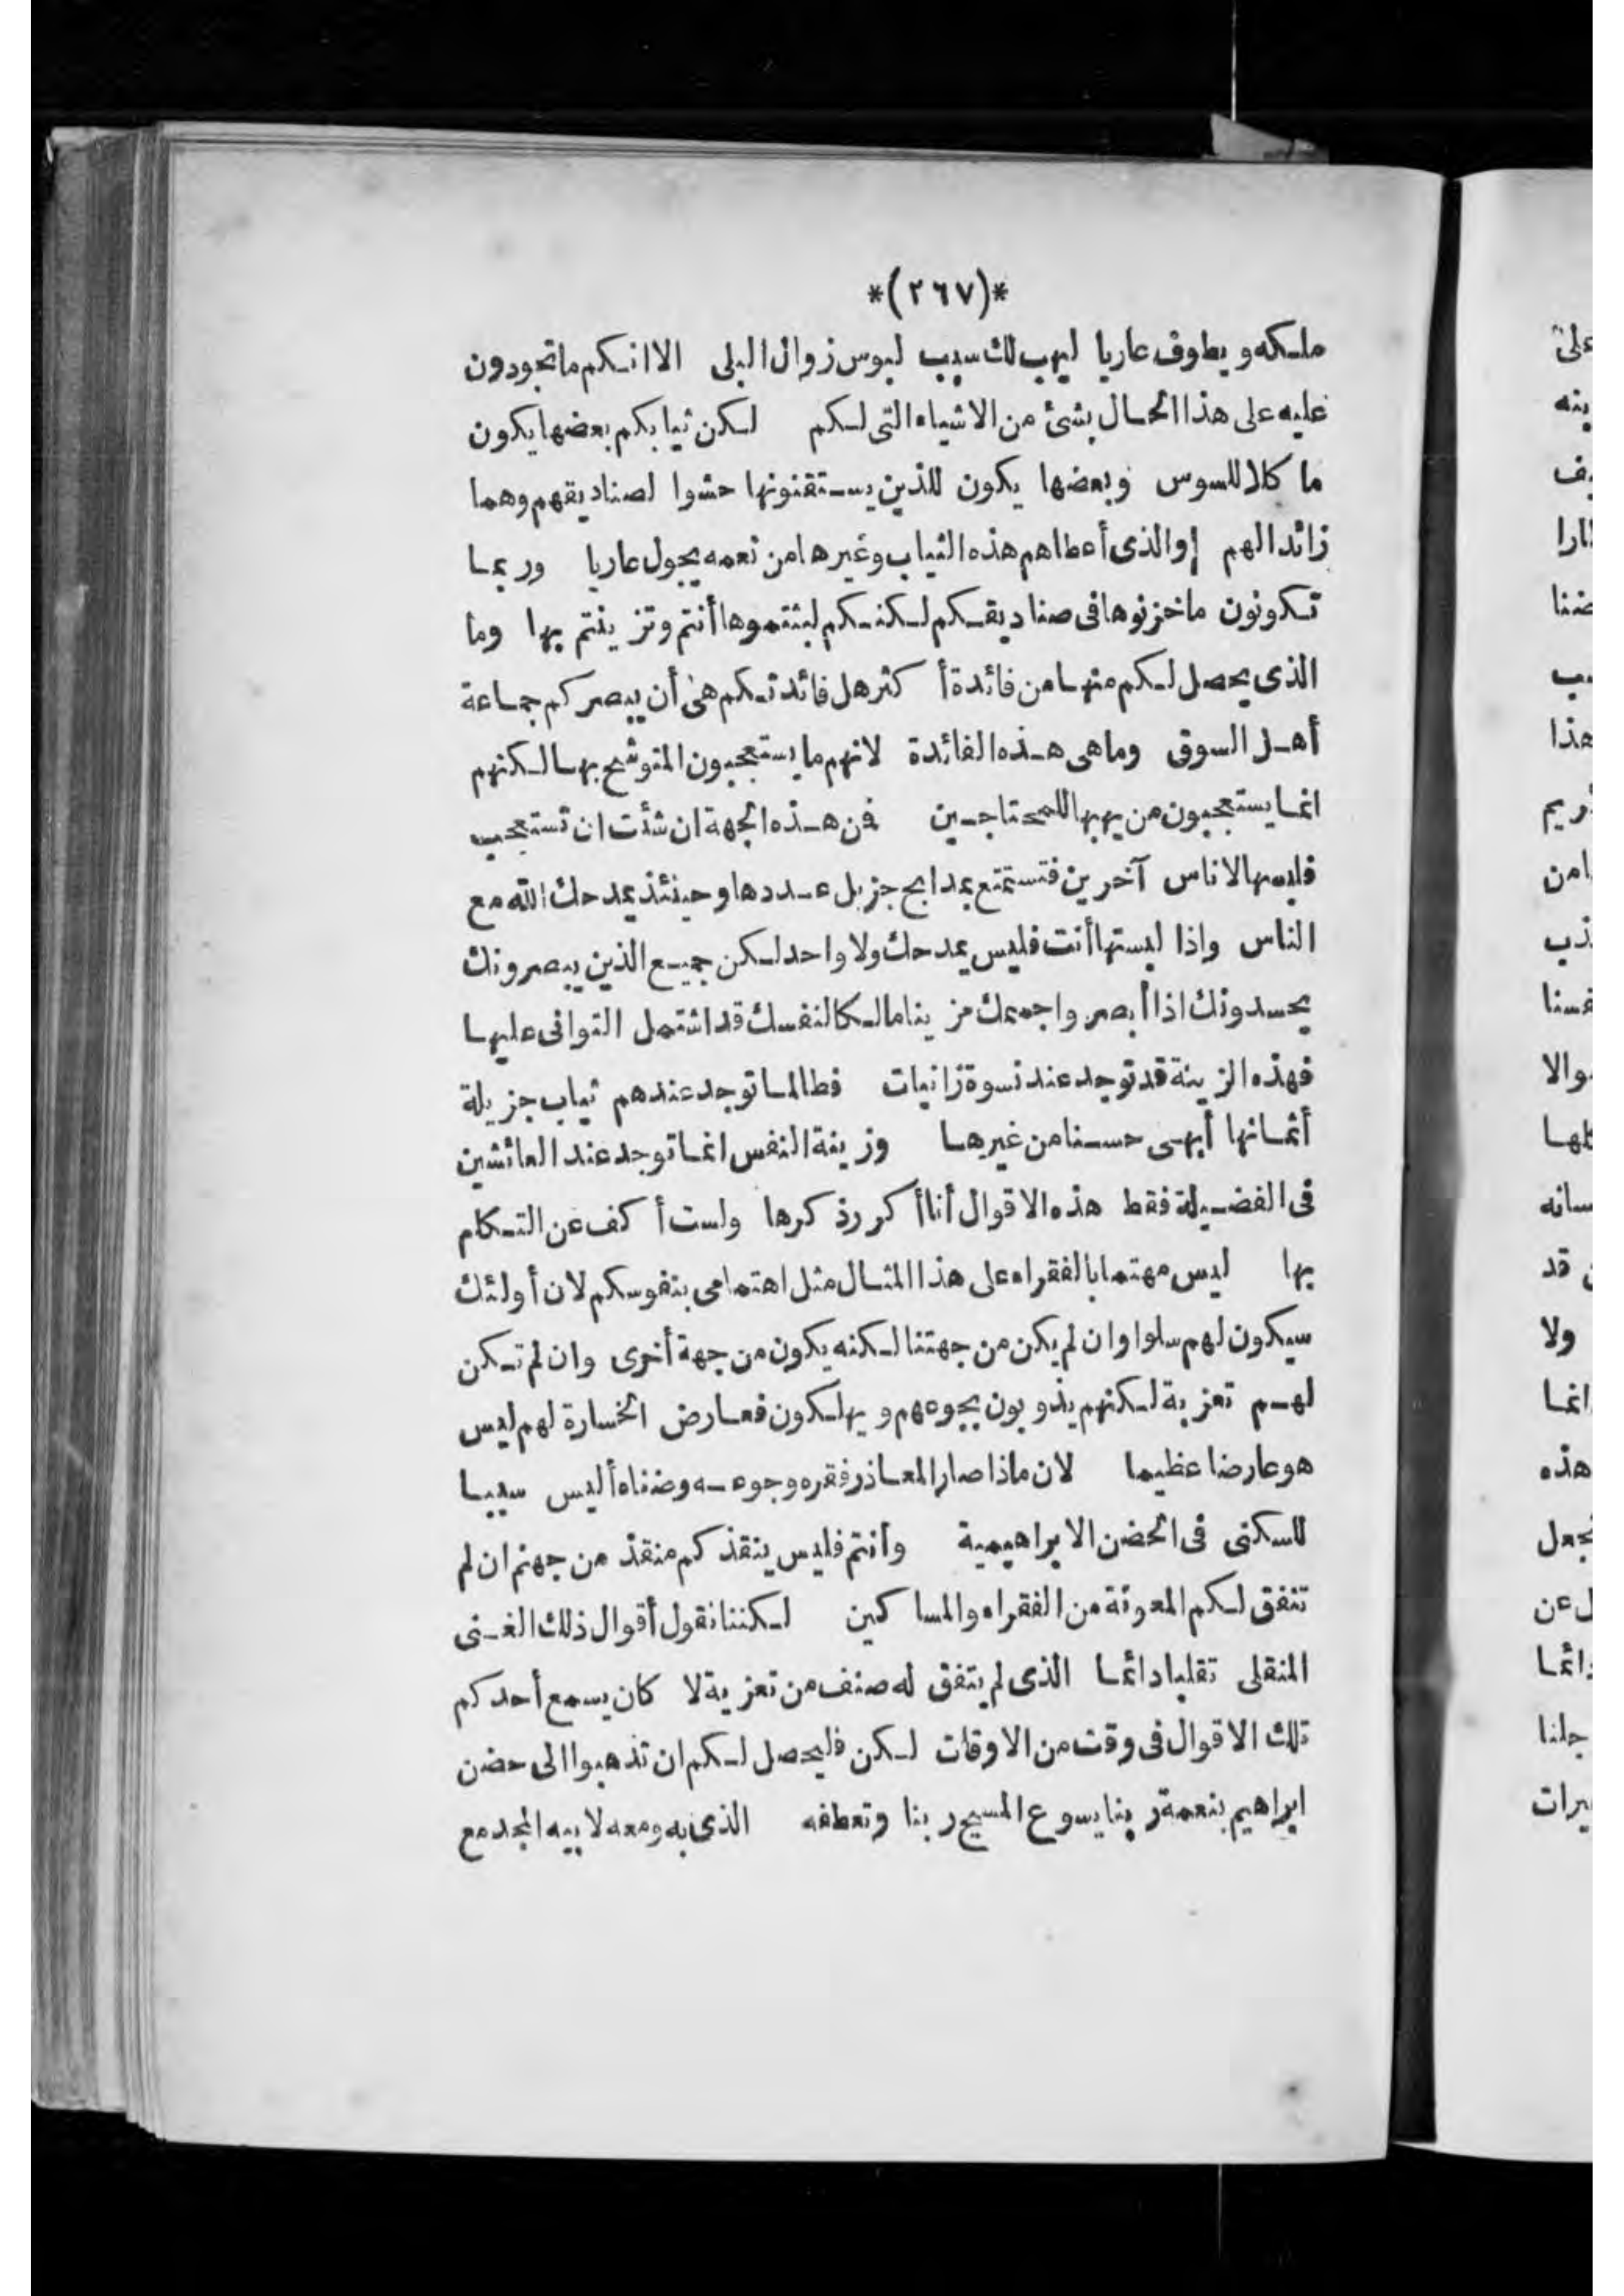 *(٢٦٧)*
ملكه ويطوف عاريا ليهب لك سبب لبوس زوال البلى الا انكم ما تجودون
عليه على هذا الحال بشئ من الاشياء التى لكم لكن ثيابكم بعضها يكون
ما كلا للسوس وبعضها يكون للذين يستقنونها حشوا لصناديقهم وهما
زائدا لهم والذى أعطاهم هذه الثياب وغيرها من نعمه يجول عاريا وربما
تكونون ما خزنوها فى صناديقكم لكنكم لبثتموها أنتم وتزينتم بها وما
الذى يحصل لكم منها من فائدة أكثر هل فائدتكم هى أن يبصركم جماعة
أهل السوق وما هى هذه الفائدة لانهم ما يستعجبون المتوشح بها لكنهم
انما يستعجبون من يهبها للمحتاجين فن هذه الجهة ان شئت ان تستعجب
فلبسها لاناس آخرين فتستمتع بمدايح جزيل عددها وحينئذ يمدحك الله مع
الناس واذا لبستها أنت فليس يمدحك ولا واحد لكن جميع الذين يبصرونك
يحسدونك اذا أبصروا جسمك مزينا مالكا لنفسك قد اشتمل التوافى عليها
فهذه الزينة قد توجد عند نسوة زانيات فطالما توجد عندهم ثياب جزيلة
أثمانها أبهى حسنا من غيرها وزينة النفس انما توجد عند العائشين
فى الفضيلة فقط هذه الاقوال أنا أكرر ذكرها ولست أكف عن التكلم
بها ليس مهتما بالفقراء على هذا المثال مثل اهتمامى بنفوسكم لان أولئك
سيكون لهم سلوا وان لم يكن من جهتنا لكنه يكون من جهة أخرى وان لم تكن
لهم تعزية لكنهم يذوبون بجوعهم ويهلكون فعارض الخسارة لهم ليس
هو عارضا عظيما لان ماذا صار العاذر فقره وجوعه وضناه أليس سببا
للسكنى فى الحضن الابراهيمية وأنتم فليس ينقذكم منقذ من جهنم ان لم
تتفق لكم المعونة من الفقراء والمساكين لكننا نقول أقوال ذلك الغنى
المنقلى تقليا دائما الذى لم يتفق له صنف من تعزية لا كان يسمع أحدكم
تلك الاقوال فى وقت من الاوقات لكن فليحصل لكم ان تذهبوا الى حضن
ابراهيم بنعمة ربنا يسوع المسيح ربنا وتعطفه الذى به ومعه لابيه المجد مع
على
ينه
هذا
امن
ولا
انما
هذه